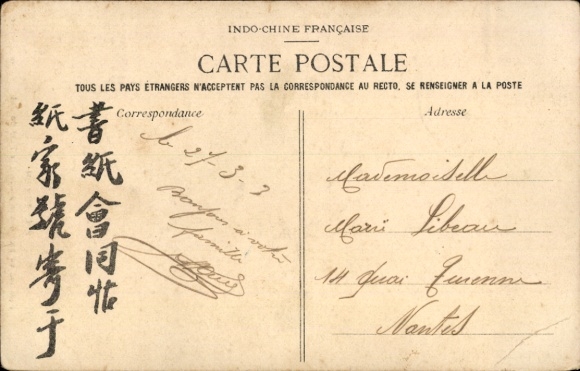 INDO-CHINE FRANÇAISE
CARTE POSTALE
TOUS LES PAYS ÉTRANGERS N'ACCEPTENT PAS LA CORRESPONDANCE AU RECTO, SE RENSEIGNER A LA POSTE
Correspondance
Adresse
書紙會同帖
紙家號寄于
le 27-3-
Bonjour à votre
famille
Mademoiselle
Marie Libeau
14 Quai Turenne
Nantes